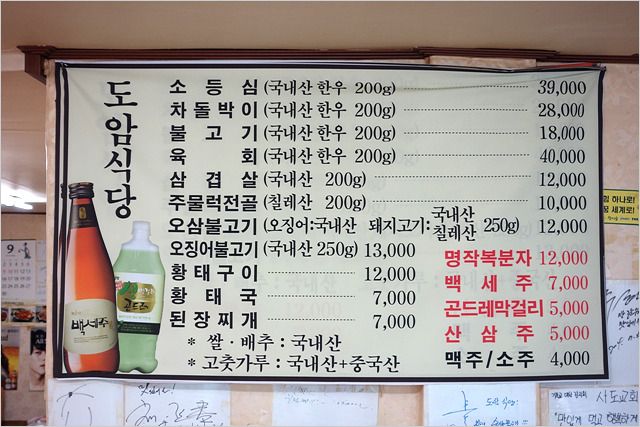 도암식당
소등심 (국내산 한우 200g) 39,000
차돌박이 (국내산 한우 200g) 28,000
불고기 (국내산 한우 200g) 18,000
육회 (국내산 한우 200g) 40,000
삼겹살 (국내산 200g) 12,000
주물럭전골 (칠레산 200g) 10,000
오삼불고기 (오징어:국내산 돼지고기: 국내산 칠레산 250g) 12,000
오징어불고기 (국내산 250g) 13,000
황태구이 12,000
황태국 7,000
된장찌개 7,000
* 쌀·배추 : 국내산
* 고춧가루 : 국내산+중국산
명작복분자 12,000
백세주 7,000
곤드레막걸리 5,000
산삼주 5,000
맥주/소주 4,000
백세주
곤드주
9
사도교회